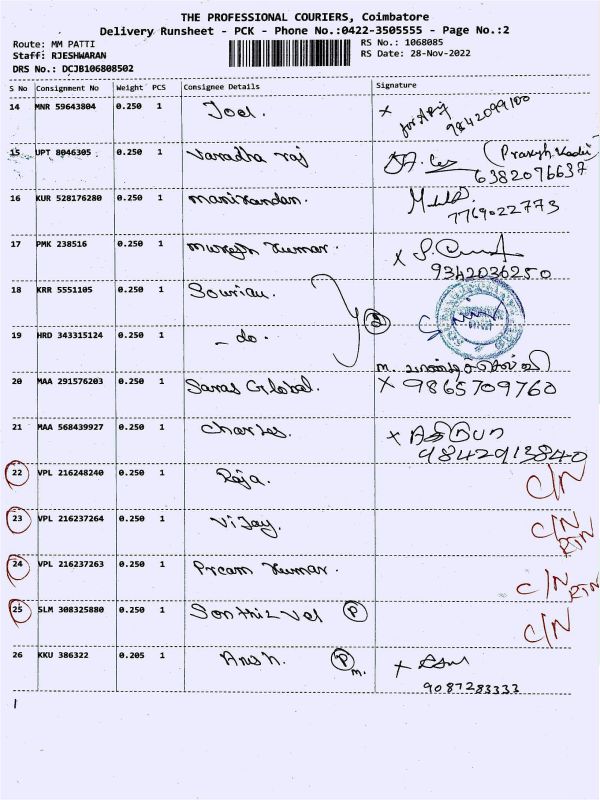 THE PROFESSIONAL COURIERS, Coimbatore
Delivery Runsheet - PCK - Phone No.:0422-3505555 - Page No.:2
Route: MM PATTI
RS No.: 1068085
Staff: RJESHWARAN
RS Date: 28-Nov-2022
DRS No.: DCJB106808502
S No Consignment No Weight PCS Consignee Details Signature
14 MNR 59643804 0.250 1 Joel. X 9842099100
15 UPT 8046305 0.250 1 Varadha raj 6382076637
16 KUR 528176280 0.250 1 manikandan. 7769022773
17 PMK 238516 0.250 1 mukesh Kumar. X 9342036250
18 KRR 5551105 0.250 1 Souriau. 2
19 HRD 343315124 0.250 1 - do.
20 MAA 291576203 0.250 1 Saras Global. X 9865709760
21 MAA 568439927 0.250 1 Charles. X 9842913840
22 VPL 216248240 0.250 1 Raja. C/N
23 VPL 216237264 0.250 1 Vijay. C/N RTN
24 VPL 216237263 0.250 1 Pream Kumar. C/N RTN
25 SLM 308325880 0.250 1 Sonthil vel P C/N
26 KKU 386322 0.205 1 P m. X 9087283333
1